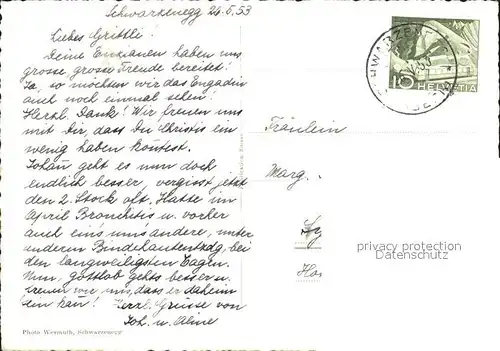 Schwarzenegg 26.5.53
Liebes Gritli!
Deine Enzianen haben uns
grosse grosse Freude bereitet!
Ja, so möchten wir das Engadin
auch noch einmal sehen!
Herzl. Dank! Wir freuen uns
mit Dir, dass Du Christis ein
wenig haben konntest.
geht es nun doch
endlich besser, vergisst jetzt
den 2. Stock oft. Hatte im
April Bronchitis u. vorher
auch eins ums andere, unter
anderem Bindehautentzdg. bei
den langweiligsten Tagen.
Nun, gottlob gehts besser u.
freuen wir uns, dass er daheim
sein kann! Herzl. Grüsse von
Joh. u. Aline
Photo Wermuth, Schwarzenegg
10
HELVETIA
Fräulein
Marg.
privacy protection
Samiras.com